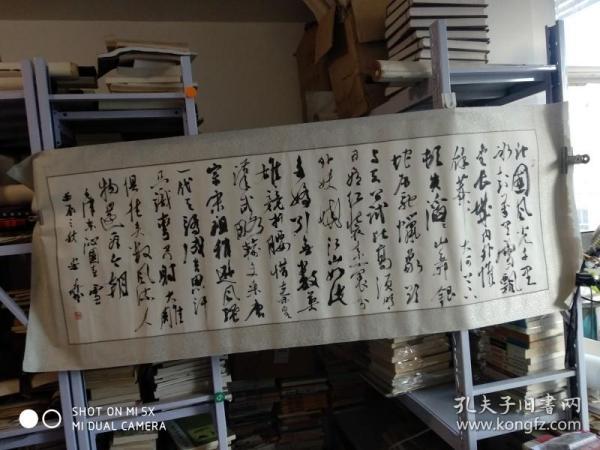 北国风光千里
冰封万里雪飘
望长城内外惟
馀莽大河上下
顿失滔山舞银
蛇原驰蜡象欲
与天公试比高须晴
日看红装素裹分
外妖娆江山如此
多娇引无数英
雄竞折腰惜秦皇
汉武略输文采唐
宗宋祖稍逊风骚
一代天骄成吉思汗
只识弯弓射大雕
俱往矣数风流人
物还看今朝
毛泽东沁园春雪
SHOT ON MI 5X
MI DUAL CAMERA
孔夫子旧书网
www.kongfz.com